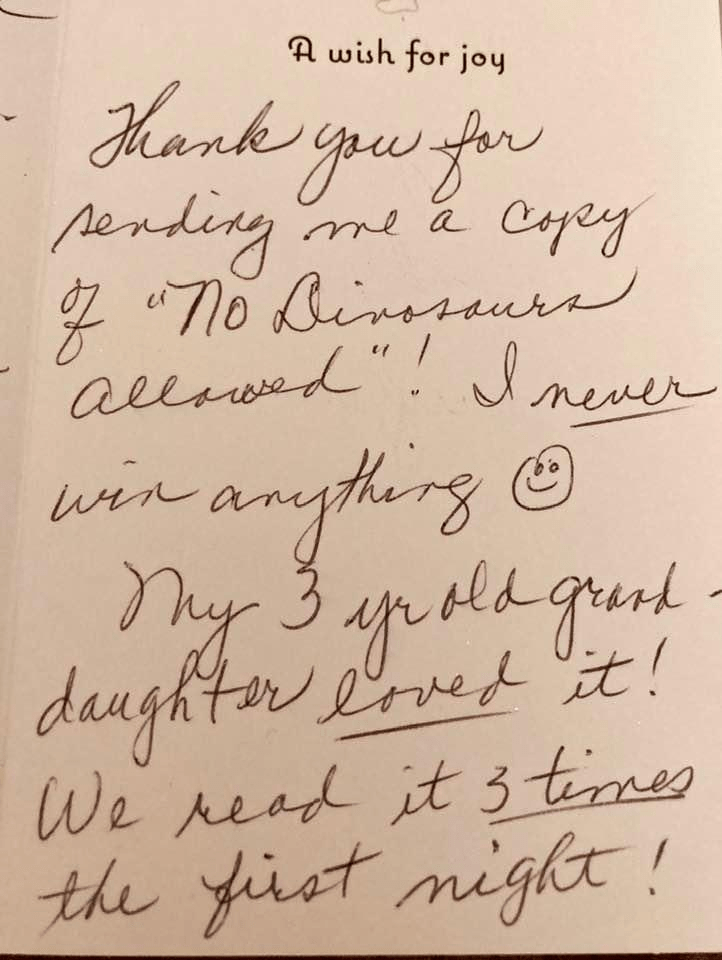 A wish for joy
Thank you for
sending me a copy
of "No Dinosaurs
Allowed"! I never
win anything ☺
My 3 yr old grand-
daughter loved it!
We read it 3 times
the first night!